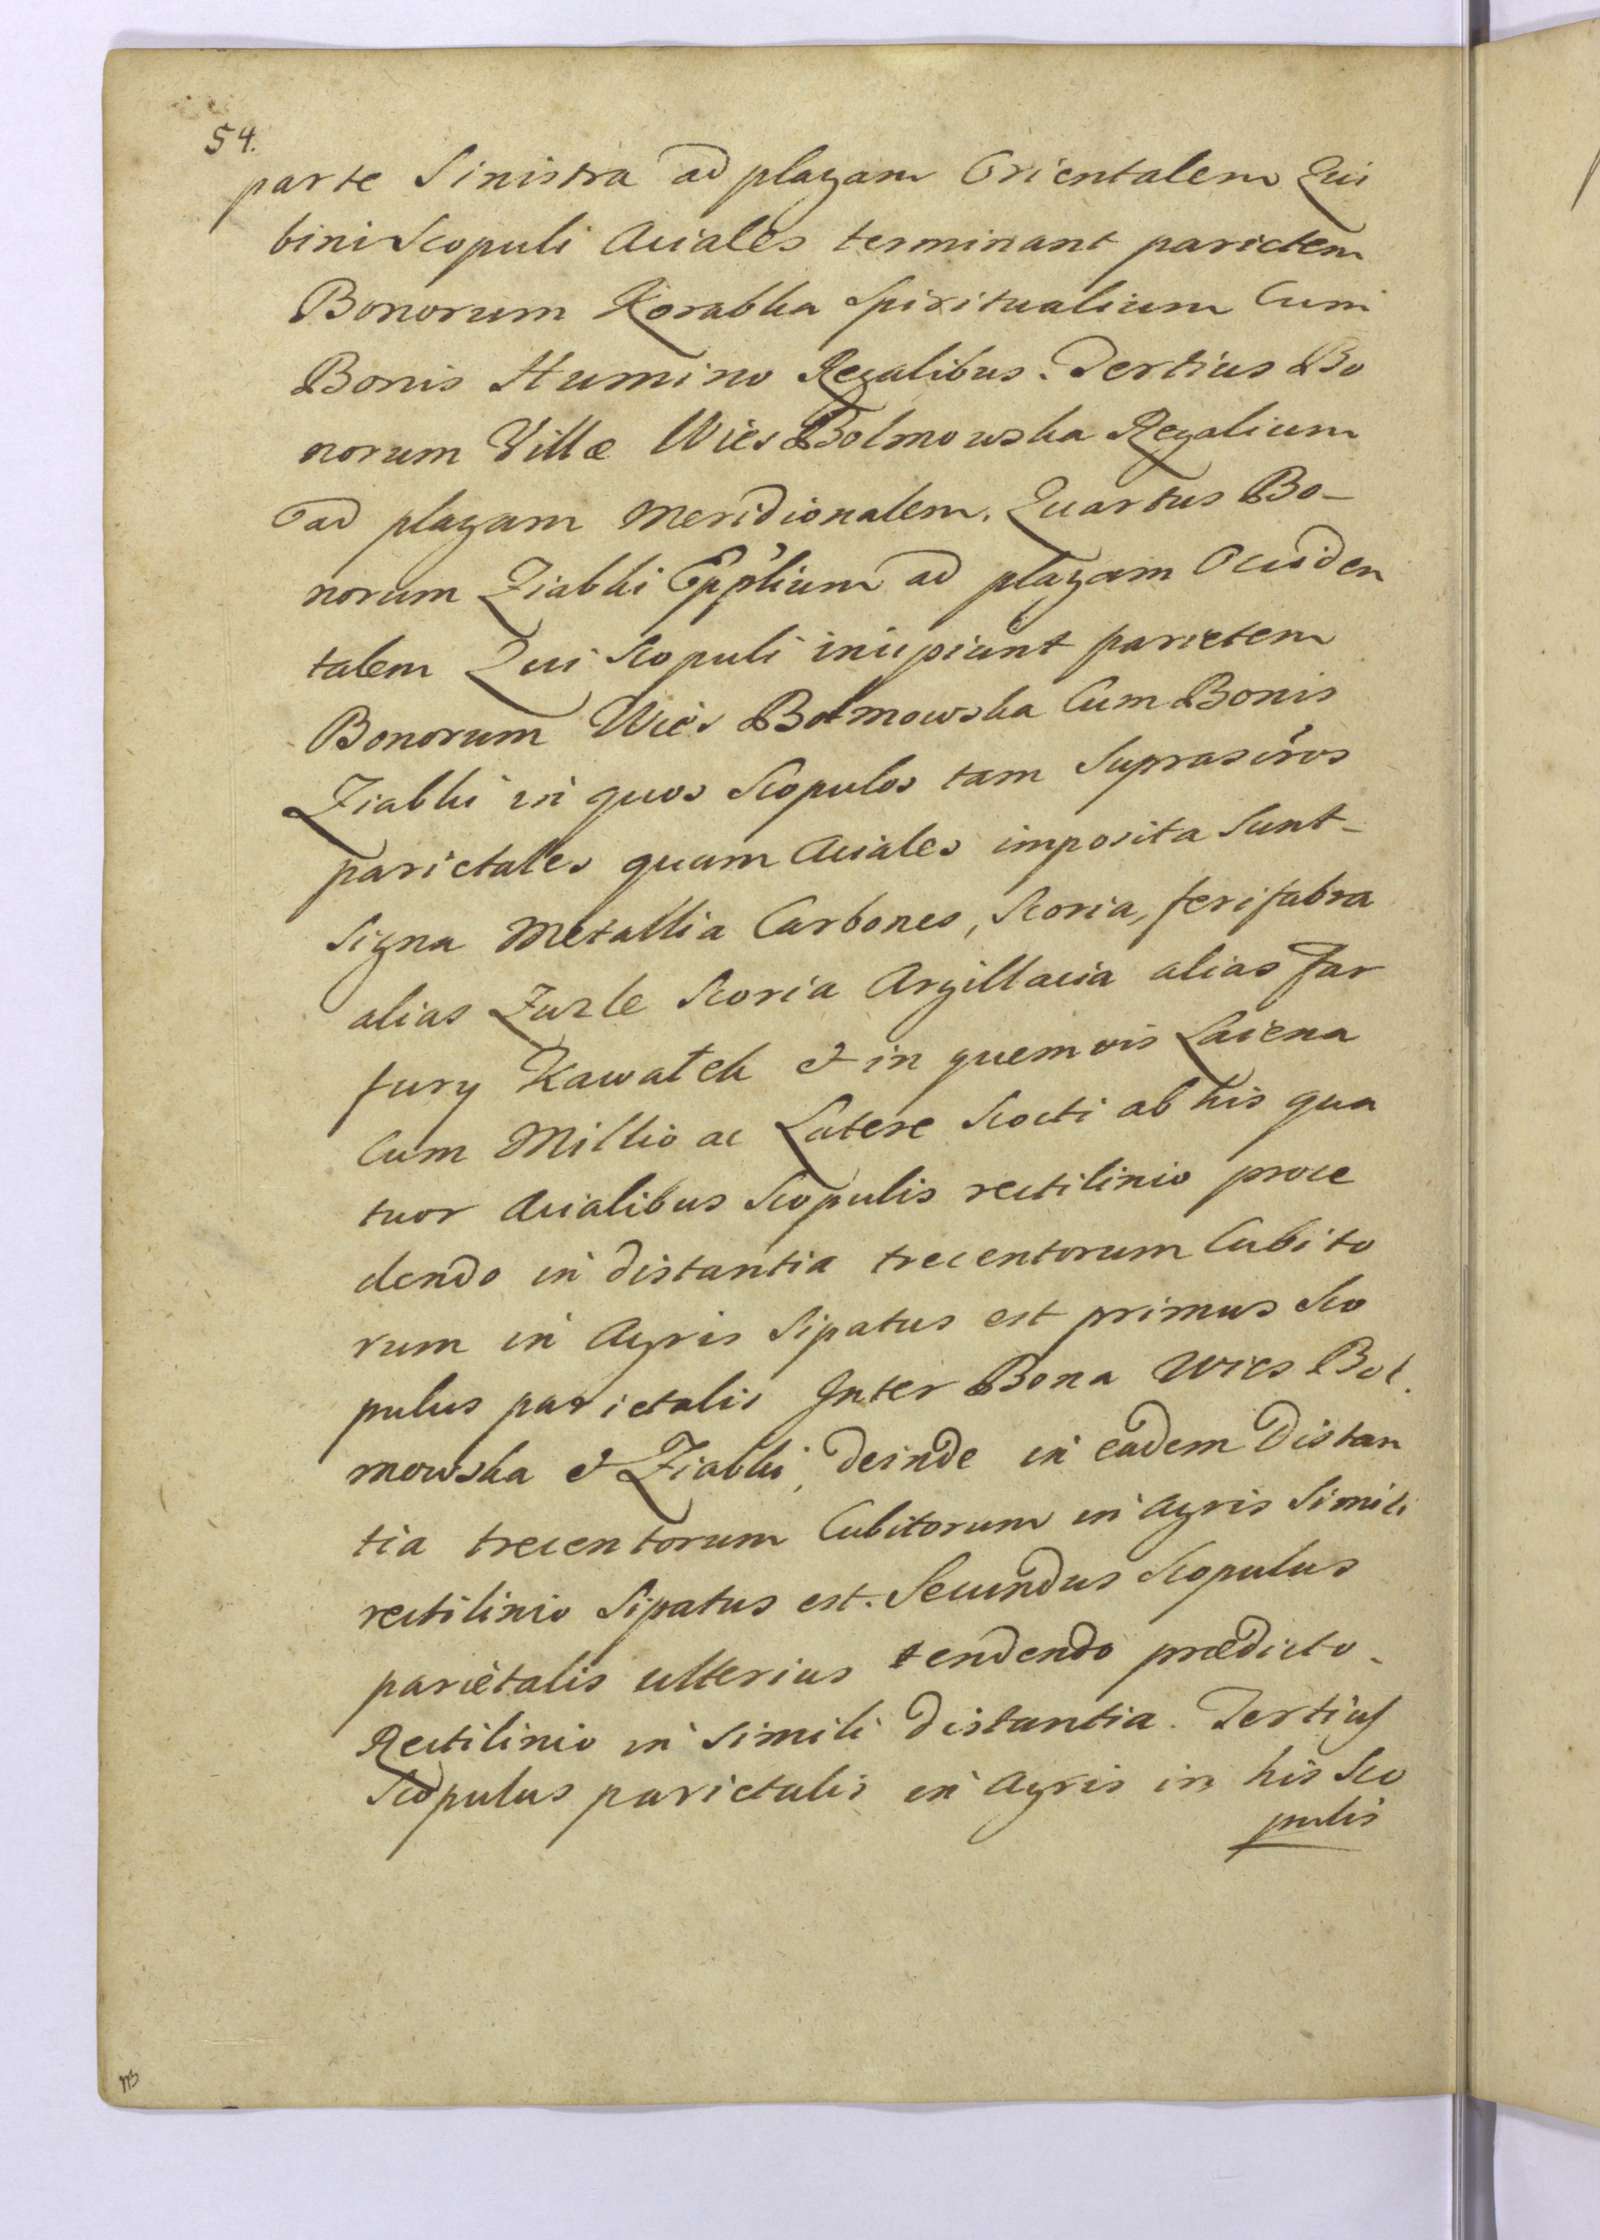 54.
parte Sinistra ad plagam Orientalem Qui
bini Scopuli Aciales terminant parietem
Bonorum Korabka Spiritualium Cum
Bonis Humino Regalibus. Tertius Bo
norum Villæ Wies Bolmowska Regalium
ad plagam Meridionalem. Quartus Bo-
norum Ziabki Eppliũm ad plagam Occiden
talem Qui Scopuli incipiunt parietem
Bonorum Wieś Bolmowska Cum Bonis
Ziabki in quos Scopulos tam Suprascros
parietales quam Aciales imposita Sunt-
Signa Metallia Carbones, Scoria, ferifabra
alias Zuzle Scoria Argillacia alias Far
fury Kawałek & in quemvis Laiena
Cum Millio ac Latere Scocti ab his qua
tuor Acialibus Scopulis rectilinio proce
dendo in distantia trecentorum Cubito
rum in Agris Sipatus est primus Sco
pulus parietalis Inter Bona Wies Bol.
mowska & Ziabki, deinde in eadem Distan
tia trecentorum Cubitorum in Agris Simili
rectilinio Sipatus est. Secundus Scopulus
parietalis ulterius tendendo prædicto-
Rectilinio in Simili distantia. Tertius
Scopulus parietalis in Agris in his Sco
pulis